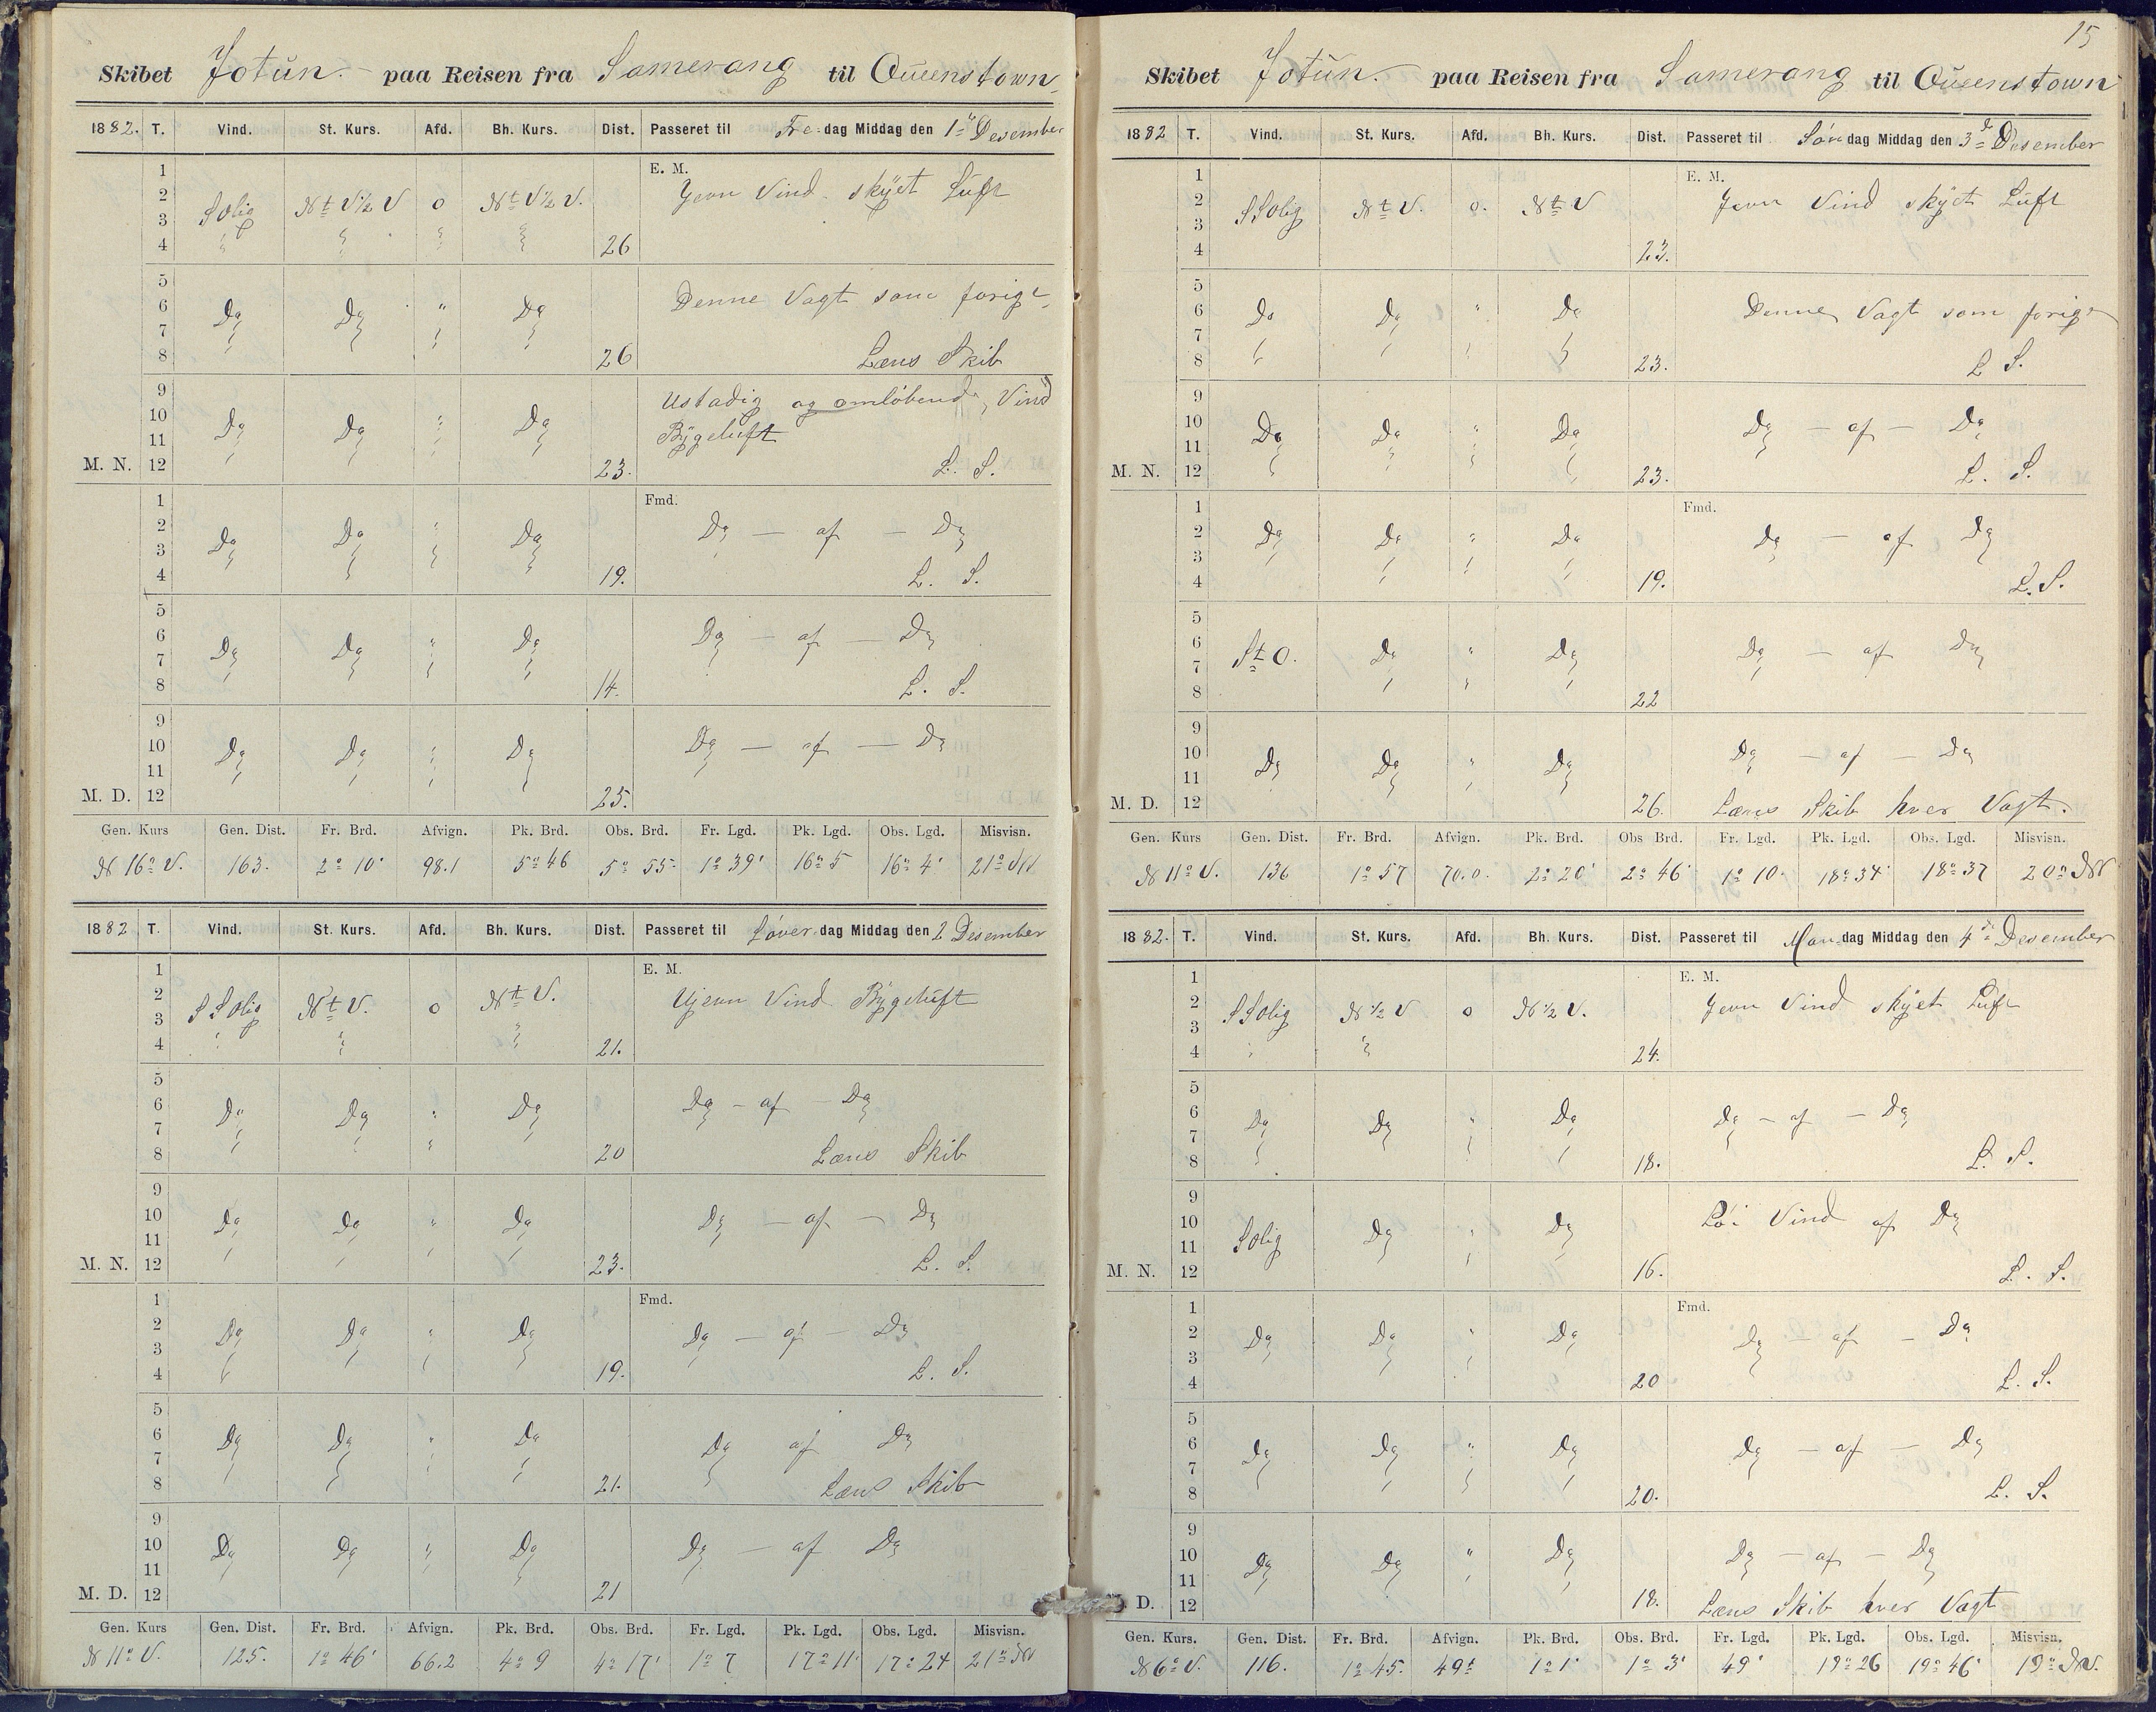 Skibet Jotun. paa Reisen fra Samerang til Queenstown
1882. T. Vind. St. Kurs. Afd. Bh. Kurs. Dist. Passeret til Fre-dag Middag den 1ste Desember
1 E. M.
2 Solig Nt V½ V o Nt V½ V. Jevn Vind skyet Luft
3
4 26
5
6 Do Do " Do Denne Vagt som forige
7
8 26 Læns Skib
9 Ustadig og omløbende Vind
10 Do Do " Do Bygeluft
11
M. N. 12 23. L. S.
1 Fmd.
2 Do Do " Do Do — af — Do
3
4 19. L. S.
5
6 Do Do " Do Do — af — Do
7
8 14. L. S.
9
10 Do Do " Do Do — af — Do
11
M. D. 12 25.
Gen. Kurs Gen. Dist. Fr. Brd. Afvign. Pk. Brd. Obs. Brd. Fr. Lgd. Pk. Lgd. Obs. Lgd. Misvisn.
N 16° V. 163. 2° 10' 98.1 5° 46 5° 55 1° 39' 16° 5 16° 4' 21° NV
1882 T. Vind. St. Kurs. Afd. Bh. Kurs. Dist. Passeret til Løver-dag Middag den 2 Desember
1 E. M.
2 SSolig Nt V. o Nt V. Ujevn Vind Bygeluft
3
4 21.
5
6 Do Do " Do Do — af — Do
7
8 20 Læns Skib
9
10 Do Do " Do Do — af — Do
11
M. N. 12 23. L. S.
1 Fmd.
2 Do Do " Do Do — af — Do
3
4 19. L. S.
5
6 Do Do " Do Do af Do
7
8 21. Læns Skib
9
10 Do Do " Do Do — af Do
11
M. D. 12 21
Gen. Kurs Gen. Dist. Fr. Brd. Afvign. Pk. Brd. Obs. Brd. Fr. Lgd. Pk. Lgd. Obs. Lgd. Misvisn.
N 11° V. 125. 1° 46' 66.2 4° 9 4° 17' 1° 7 17° 11' 17° 24 21° NV
15
Skibet Jotun. paa Reisen fra Samerang til Queenstown
1882 T. Vind. St. Kurs. Afd. Bh. Kurs. Dist. Passeret til Søn dag Middag den 3de Desember
1 E. M.
2 SSolig Nt V. o. Nt V Jevn Vind skyet Luft
3
4 23.
5
6 Do Do " Do Denne Vagt som forige
7
8 23. L S.
9
10 Do Do " Do Do — af — Do
11
M. N. 12 23. L. S.
1 Fmd.
2 Do Do " Do Do — af Do
3
4 19. L. S.
5
6 St O. Do " Do Do — af Do
7
8 22
9
10 Do Do " Do Do — af — Do
11
M. D. 12 26. Læns Skib hver Vagt.
Gen. Kurs Gen. Dist. Fr. Brd. Afvign. Pk. Brd. Obs Brd. Fr. Lgd. Pk. Lgd. Obs. Lgd. Misvisn.
N 11° V. 136 1° 57 70.0. 2° 20' 2° 46' 1° 10. 18° 34' 18° 37 20° NV
1882. T. Vind. St. Kurs. Afd. Bh. Kurs. Dist. Passeret til Man-dag Middag den 4de Desember
1 E. M.
2 SSolig N ½ V o N ½ V. Jevn Vind skyet Luft
3
4 24.
5
6 Do Do " Do Do — af — Do
7
8 18. L. S.
9
10 Solig Do " Do Løi Vind af Do
11
M. N. 12 16. L. S.
1 Fmd.
2 Do Do " Do Do — af — Do
3
4 20 L. S.
5
6 Do Do " Do Do — af — Do
7
8 20. L. S.
9
10 Do Do " Do Do — af — Do
11
D. 12 18. Læns Skib hver Vagt
Gen. Kurs. Gen. Dist. Fr. Brd. Afvign. Pk. Brd. Obs. Brd. Fr. Lgd. Pk. Lgd. Obs. Lgd. Misvisn.
N 6° V. 116. 1° 45. 1° 1' 1° 3' 49' 19° 26 19° 46' 19° NV.